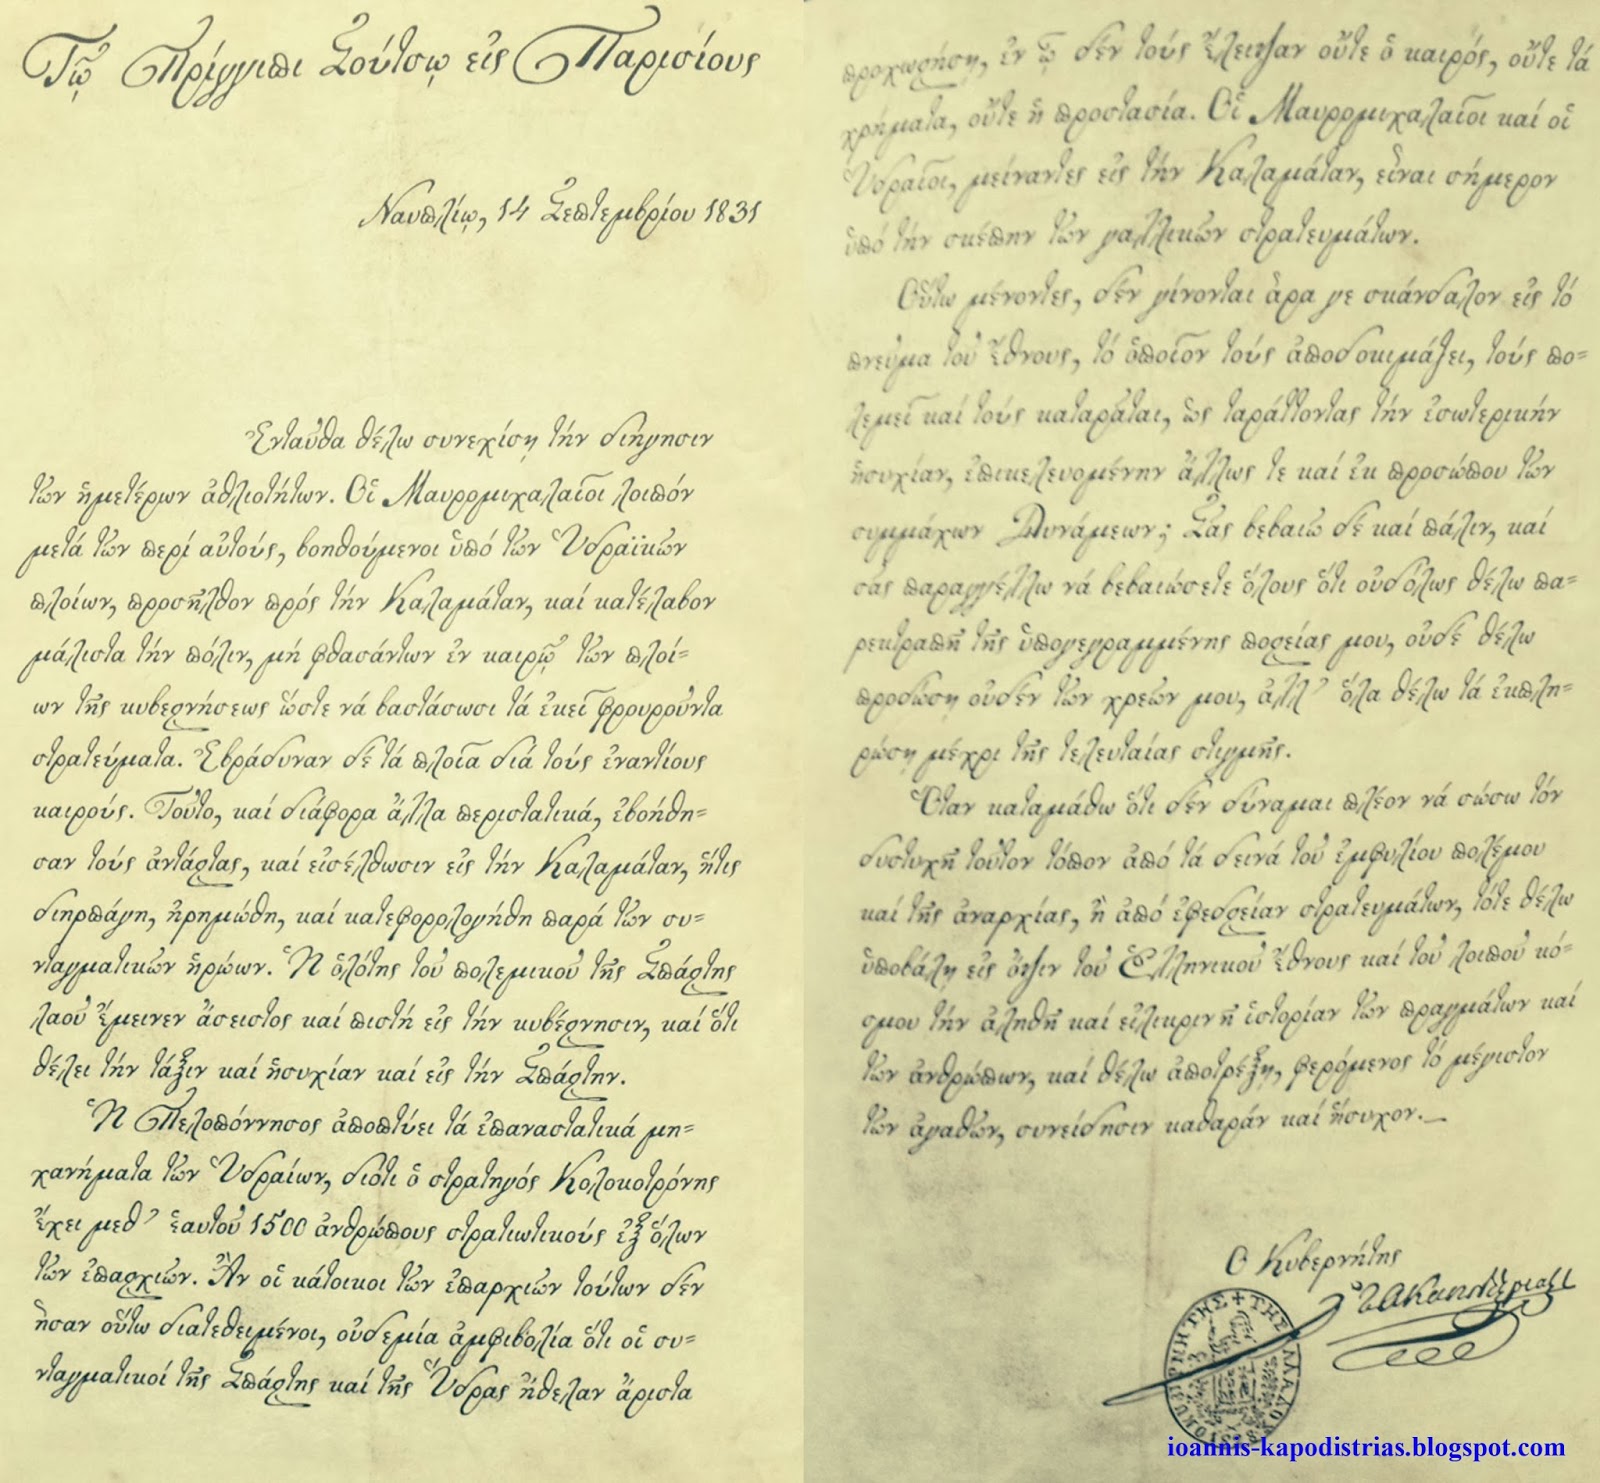 Τῷ Πρίγγιπι Σούτσῳ εἰς Παρισίους
Ναυπλίῳ, 14 Σεπτεμβρίου 1831
Ἐνταῦθα θέλω συνεχίσῃ τήν διήγησιν
τῶν ἡμετέρων ἀθλιοτήτων. Οἱ Μαυρομιχαλαῖοι λοιπόν
μετά τῶν περί αὐτούς, βοηθούμενοι ὑπό τῶν Ὑδραϊκῶν
πλοίων, προσῆλθον πρός τήν Καλαμάταν, καί κατέλαβον
μάλιστα τήν πόλιν, μή φθασάντων ἐν καιρῷ τῶν πλοί=
ων τῆς κυβερνήσεως ὥστε νά βαστάσωσι τά ἐκεῖ φρουροῦντα
στρατεύματα. Ἐβράδυναν δέ τά πλοῖα διά τούς ἐναντίους
καιρούς. Τοῦτο, καί διάφορα ἄλλα περιστατικά, ἐβοήθη=
σαν τούς ἀντάρτας, καί εἰσέλθωσιν εἰς τήν Καλαμάταν, ἥτις
διηρπάγη, ἠρημώθη, καί κατεφορολογήθη παρά τῶν συ=
νταγματικῶν ἡρώων. Ἡ ὁλότης τοῦ πολεμικοῦ τῆς Σπάρτης
λαοῦ ἔμεινεν ἄσειστος καί πιστή εἰς τήν κυβέρνησιν, καί ὅτι
θέλει τήν τάξιν καί ἡσυχίαν καί εἰς τήν Σπάρτην.
Ἡ Πελοπόννησος ἀποπτύει τά ἐπαναστατικά μη=
χανήματα τῶν Ὑδραίων, διότι ὁ στρατηγός Κολοκοτρόνης
ἔχει μεθ’ ἑαυτοῦ 1500 ἀνθρώπους στρατιωτικούς ἐξ ὅλων
τῶν ἐπαρχιῶν. Ἄν οἱ κάτοικοι τῶν ἐπαρχιῶν τούτων δέν
ἦσαν οὕτω διατεθειμένοι, οὐδεμία ἀμφιβολία ὅτι οἱ συ=
νταγματικοί τῆς Σπάρτης καί τῆς Ὕδρας ἤθελαν ἄριστα
προχωρήσῃ, ἐν ᾧ δέν τούς ἔλειψαν οὔτε ὁ καιρός, οὔτε τά
χρήματα, οὔτε ἡ προστασία. Οἱ Μαυρομιχαλαῖοι καί οἱ
Ὑδραῖοι, μείναντες εἰς τήν Καλαμάταν, εἶναι σήμερον
ὑπό τήν σκέπην τῶν γαλλικῶν στρατευμάτων.
Οὕτω μένοντες, δέν γίνονται ἆρα γε σκάνδαλον εἰς τό
πνεῦμα τοῦ Ἔθνους, τό ὁποῖον τούς ἀποδοκιμάζει, τούς πο=
λεμεῖ καί τούς καταρᾶται, ὡς ταράττοντας τήν ἐσωτερικήν
ἡσυχίαν, ἐπικελευομένην ἄλλως τε καί ἐκ προσώπου τῶν
συμμάχων Δυνάμεων; Σᾶς βεβαιῶ δέ καί πάλιν, καί
σᾶς παραγγέλλω νά βεβαιώσετε ὅλους ὅτι οὐδόλως θέλω πα=
ρεκτραπῆ τῆς ὑπογεγραμμένης πορείας μου, οὐδέ θέλω
προδώσῃ οὐδέν τῶν χρεῶν μου, ἀλλ’ ὅλα θέλω τά ἐκπλη=
ρώσῃ μέχρι τῆς τελευταίας στιγμῆς.
Ὅταν καταμάθω ὅτι δέν δύναμαι πλέον νά σώσω τόν
δυστυχῆ τοῦτον τόπον ἀπό τά δεινά τοῦ ἐμφυλίου πολέμου
καί τῆς ἀναρχίας, ἤ ἀπό ἐφεδρείαν στρατευμάτων, τότε θέλω
ὑποβάλῃ εἰς ὄψιν τοῦ Ἑλληνικοῦ Ἔθνους καί τοῦ λοιποῦ κό=
σμου τήν ἀληθῆ καί εἰλικρινῆ ἱστορίαν τῶν πραγμάτων καί
τῶν ἀνθρώπων, καί θέλω ἀποτρέξῃ, φερόμενος τό μέγιστον
τῶν ἀγαθῶν, συνείδησιν καθαράν καί ἥσυχον._
Ο Κυβερνήτης
Ἰ Α Καποδίστριας
Ο ΚΥΒΕΡΝΗΤΗΣ + ΤΗΣ ΕΛΛΑΔΟΣ
ioannis-kapodistrias.blogspot.com